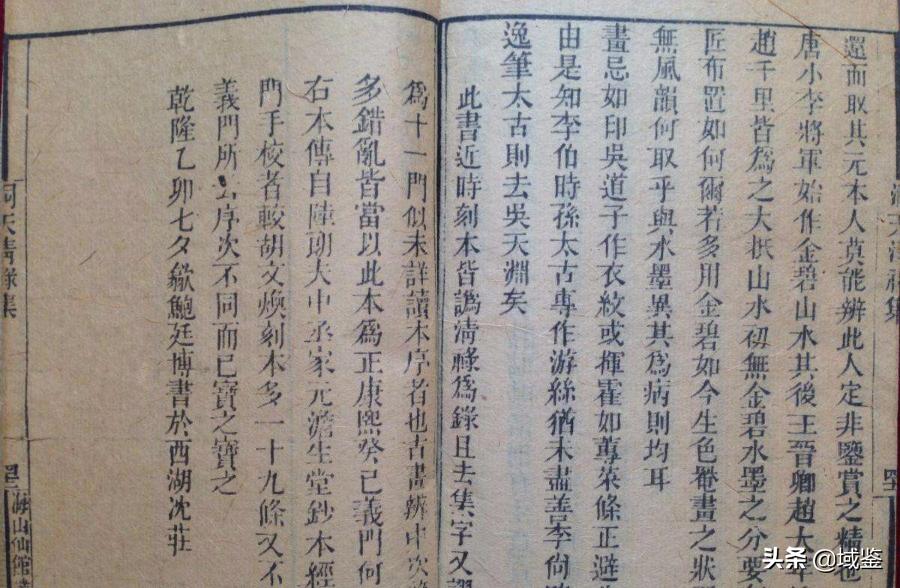 還而取其元本人莫能辨此人定非鑒賞之精
唐小李將軍始作金碧山水其後王晉卿趙大年
趙千里皆爲之大抵山水初無金碧水墨之分要
匠布置如何爾若多用金碧如今生色罨畫之狀
無風韻何取乎與水墨異其爲病則均耳
畫忌如印吳道子作衣紋或揮霍如蓴菜條正避
由是知李伯時孫太古專作游絲猶未盡善李尚
逸筆太古則去吳天淵矣
此書近時刻本皆譌清祿爲錄且去集字又
爲十一門似未詳讀本序者也古畫辨中次
多錯亂皆當以此本爲正康熙癸已義門何
右本傳自陸朗大中丞家元澹生堂鈔本經
門手校者較胡文煥刻本多一十九條又不
義門所序次不同而已寶之寶之
乾隆乙卯七夕歙鮑廷博書於西湖沈莊
洞天清祿集
海山仙館
头条 @域鉴